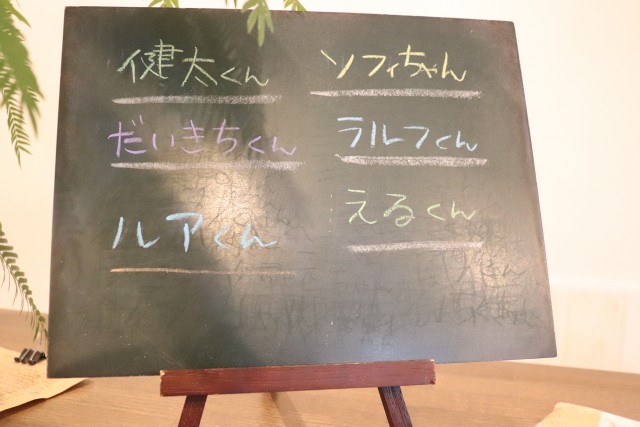 健太くん
だいきちくん
ルアくん
ソフィちゃん
ラルフくん
えるくん